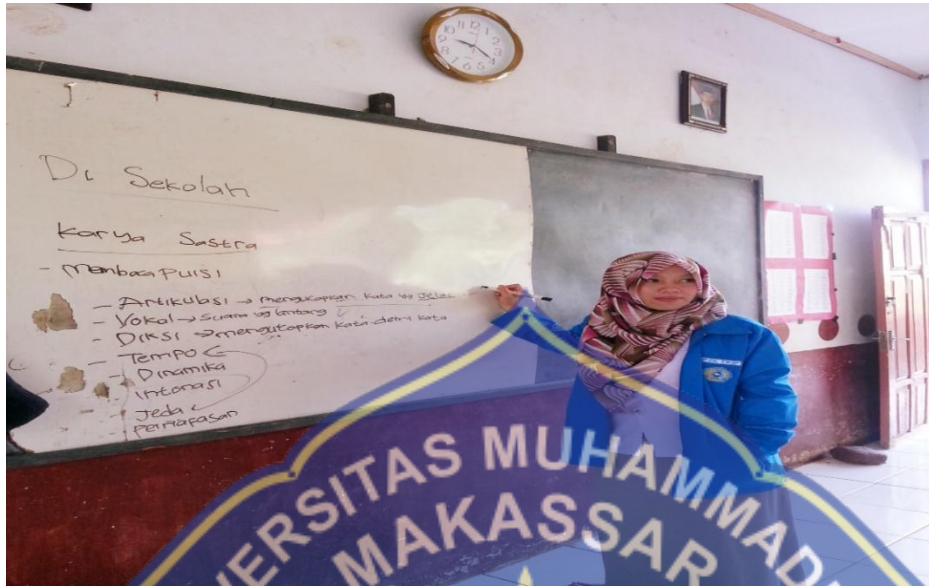 Di Sekolah
Karya Sastra
- Membaca Puisi
- Artikulasi → mengucapkan kata yg jelas
- Vokal → Suara yg lantang
- Diksi → mengucapkan kata demi kata
- Tempo
- Dinamika
Intonasi
Jeda
- pernafasan
UNIVERSITAS MUHAMMAD
MAKASSAR